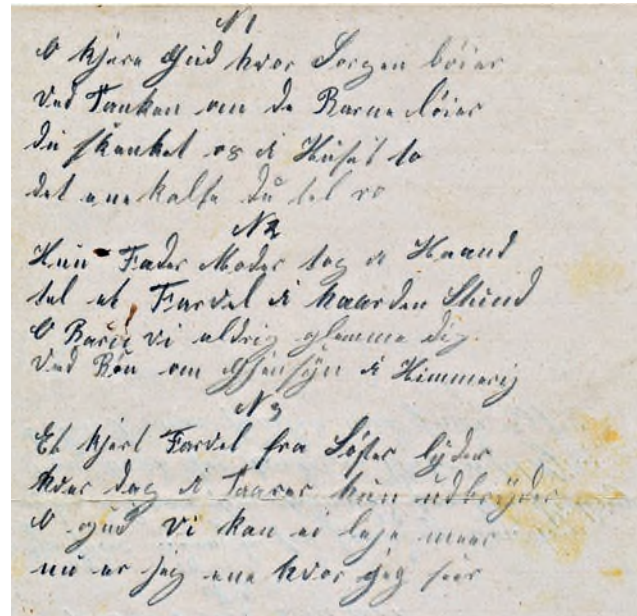 N1
O kjere Gud hvor Sorgen böier
ved Tanken om de Barne löier
du skenket os i Huset to
det ene kalte du tel ro
N2
Hun Fader Moder tog i Haand
tel et Farvel i haarden Stund
O Barn vi aldrig glemme dig
ved Bön om Gjensÿn i Himmerig
N3
Et kjert Farvel fra Söster lÿder
hver dag i taarer hun udbrÿder
O gud vi kan ei leje meer
nu er jeg ene hvor jeg seer